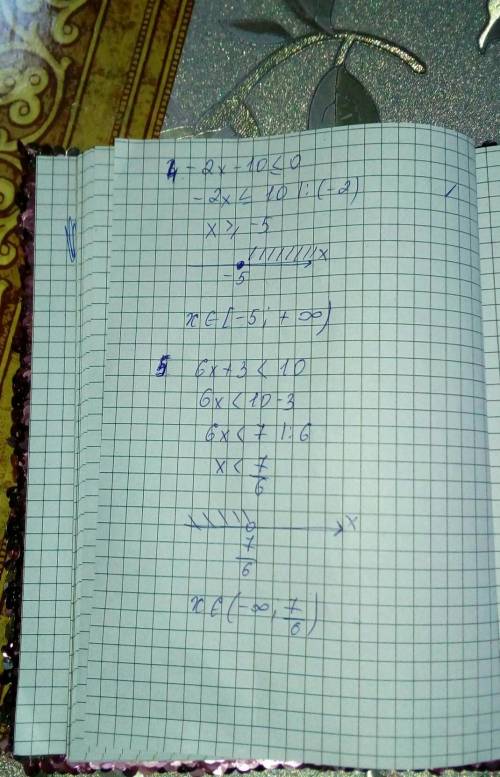 4 -2x-10≤0
-2x ≤ 10 |:(-2)
x ≥ -5
x
-5
x∈[-5; +∞)
5 6x+3<10
6x<10-3
6x<7 |:6
x < 7/6
x
7/6
x∈(-∞; 7/6)